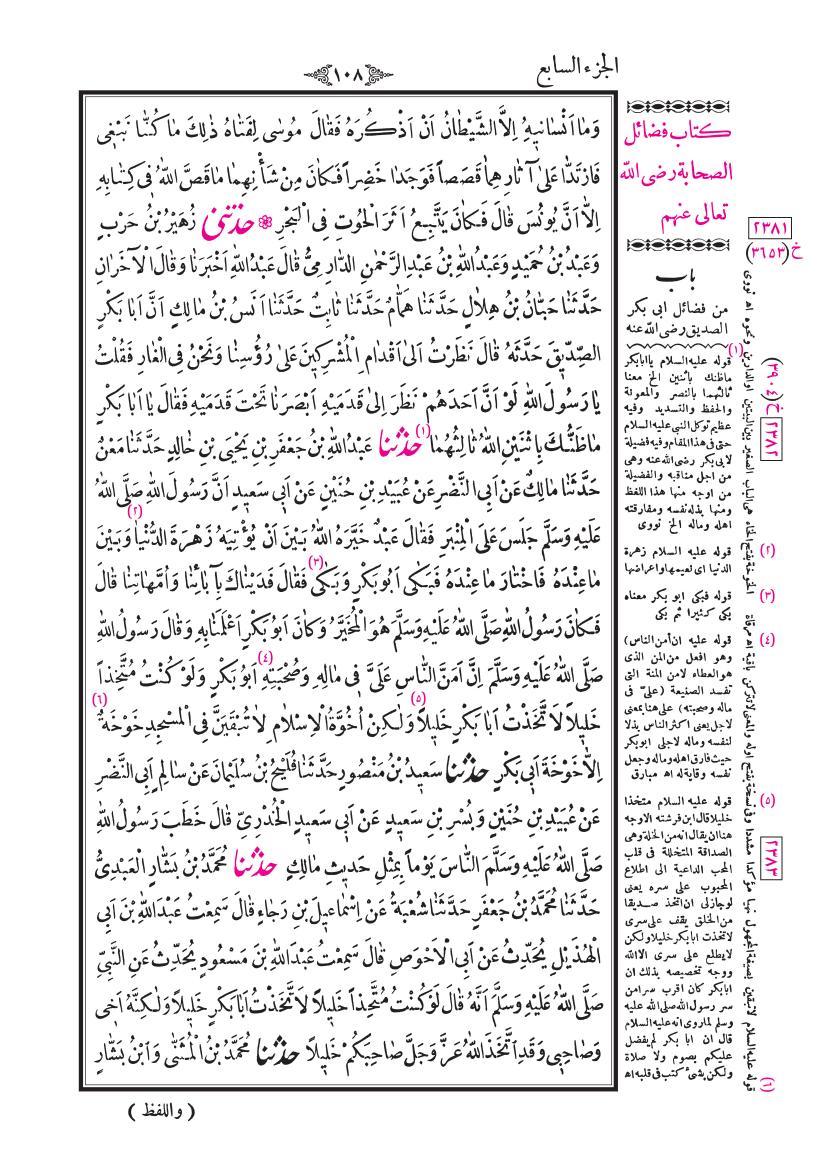 الجزء السابع
١٠٨
وَمَا اَنْسَانِيهُ اِلَّا الشَّيْطَانُ اَنْ اَذْكُرَهُ فَقَالَ مُوسٰى لِفَتَاهُ ذٰلِكَ مَا كُنَّا نَبْغِى
فَارْتَدَّا عَلٰى آثَارِهِمَا قَصَصاً فَوَجَدَا خَضِراً فَكَانَ مِنْ شَأْنِهِمَا مَا قَصَّ اللّٰهُ فِى كِتَابِهِ
اِلَّا اَنَّ يُونُسَ قَالَ فَكَانَ يَتَّبِعُ اَثَرَ الْحُوتِ فِى الْبَحْرِ ❁ حَدَّثَنِى زُهَيْرُ بْنُ حَرْبٍ
وَعَبْدُ بْنُ حُمَيْدٍ وَعَبْدُ اللّٰهِ بْنُ عَبْدِ الرَّحْمٰنِ الدَّارِمِىُّ قَالَ عَبْدُ اللّٰهِ اَخْبَرَنَا وَقَالَ الْآخَرَانِ
حَدَّثَنَا حَبَّانُ بْنُ هِلَالٍ حَدَّثَنَا هَمَّامٌ حَدَّثَنَا ثَابِتٌ حَدَّثَنَا اَنَسُ بْنُ مَالِكٍ اَنَّ اَبَا بَكْرٍ
الصِّدِّيقَ حَدَّثَهُ قَالَ نَظَرْتُ اِلٰى اَقْدَامِ الْمُشْرِكِينَ عَلٰى رُؤُسِنَا وَنَحْنُ فِى الْغَارِ فَقُلْتُ
يَا رَسُولَ اللّٰهِ لَوْ اَنَّ اَحَدَهُمْ نَظَرَ اِلٰى قَدَمَيْهِ اَبْصَرَنَا تَحْتَ قَدَمَيْهِ فَقَالَ يَا اَبَا بَكْرٍ
مَا ظَنُّكَ بِاثْنَيْنِ اللّٰهُ ثَالِثُهُمَا (١) حَدَّثَنَا عَبْدُ اللّٰهِ بْنُ جَعْفَرِ بْنِ يَحْيَى بْنِ خَالِدٍ حَدَّثَنَا مَعْنٌ
حَدَّثَنَا مَالِكٌ عَنْ اَبِى النَّضْرِ عَنْ عُبَيْدِ بْنِ حُنَيْنٍ عَنْ اَبِى سَعِيدٍ اَنَّ رَسُولَ اللّٰهِ صَلَّى اللّٰهُ
عَلَيْهِ وَسَلَّمَ جَلَسَ عَلَى الْمِنْبَرِ فَقَالَ عَبْدٌ خَيَّرَهُ اللّٰهُ بَيْنَ اَنْ يُؤْتِيَهُ زَهْرَةَ الدُّنْيَا (٢) وَبَيْنَ
مَا عِنْدَهُ فَاخْتَارَ مَا عِنْدَهُ فَبَكٰى اَبُو بَكْرٍ (٣) وَبَكٰى فَقَالَ فَدَيْنَاكَ بِآبَائِنَا وَاُمَّهَاتِنَا قَالَ
فَكَانَ رَسُولُ اللّٰهِ صَلَّى اللّٰهُ عَلَيْهِ وَسَلَّمَ هُوَ الْمُخَيَّرُ وَكَانَ اَبُو بَكْرٍ اَعْلَمَنَا بِهِ وَقَالَ رَسُولُ اللّٰهِ
صَلَّى اللّٰهُ عَلَيْهِ وَسَلَّمَ اِنَّ اَمَنَّ النَّاسِ عَلَىَّ فِى مَالِهِ وَصُحْبَتِهِ (٤) اَبُو بَكْرٍ وَلَوْ كُنْتُ مُتَّخِذاً
خَلِيلاً لَاتَّخَذْتُ اَبَا بَكْرٍ خَلِيلاً (٥) وَلٰكِنْ اُخُوَّةُ الْاِسْلَامِ لَا تُبْقَيَنَّ فِى الْمَسْجِدِ خَوْخَةٌ (٦)
اِلَّا خَوْخَةَ اَبِى بَكْرٍ حَدَّثَنَا سَعِيدُ بْنُ مَنْصُورٍ حَدَّثَنَا فُلَيْحُ بْنُ سُلَيْمَانَ عَنْ سَالِمٍ اَبِى النَّضْرِ
عَنْ عُبَيْدِ بْنِ حُنَيْنٍ وَبُسْرِ بْنِ سَعِيدٍ عَنْ اَبِى سَعِيدٍ الْخُدْرِىِّ قَالَ خَطَبَ رَسُولُ اللّٰهِ
صَلَّى اللّٰهُ عَلَيْهِ وَسَلَّمَ النَّاسَ يَوْماً بِمِثْلِ حَدِيثِ مَالِكٍ حَدَّثَنَا مُحَمَّدُ بْنُ بَشَّارٍ الْعَبْدِىُّ
حَدَّثَنَا مُحَمَّدُ بْنُ جَعْفَرٍ حَدَّثَنَا شُعْبَةُ عَنْ اِسْمَاعِيلَ بْنِ رَجَاءٍ قَالَ سَمِعْتُ عَبْدَ اللّٰهِ بْنَ اَبِى
الْهُذَيْلِ يُحَدِّثُ عَنْ اَبِى الْاَحْوَصِ قَالَ سَمِعْتُ عَبْدَ اللّٰهِ بْنَ مَسْعُودٍ يُحَدِّثُ عَنِ النَّبِىِّ
صَلَّى اللّٰهُ عَلَيْهِ وَسَلَّمَ اَنَّهُ قَالَ لَوْ كُنْتُ مُتَّخِذاً خَلِيلاً لَاتَّخَذْتُ اَبَا بَكْرٍ خَلِيلاً وَلٰكِنَّهُ اَخِى
وَصَاحِبِى وَقَدِ اتَّخَذَ اللّٰهُ عَزَّ وَجَلَّ صَاحِبَكُمْ خَلِيلاً حَدَّثَنَا مُحَمَّدُ بْنُ الْمُثَنّٰى وَابْنُ بَشَّارٍ
( واللفظ )
كتاب فضائل
الصحابة رضى الله
تعالى عنهم
باب
من فضائل ابى بكر
الصديق رضى الله عنه
(١) قوله عليه السلام يا ابا بكر
ماظنك باثنين الخ معنا
ثالثهما بالنصر والمعونة
والحفظ والتسديد وفيه
عظيم توكل النبى عليه السلام
حتى فى هذا المقام وفيه فضيلة
لابى بكر رضى الله عنه وهى
من اجل مناقبه والفضيلة
من اوجه منها هذا اللفظ
ومنها بذله نفسه ومفارقته
اهله وماله الخ نووى
(٢) قوله عليه السلام زهرة
الدنيا اى نعيمها واعراضها
(٣) قوله فبكى ابو بكر معناه
بكى كثيرا ثم بكى
(٤) قوله عليه ان أمن الناس)
وهو افعل من المن الذى
هو العطاء لا من المنة التى
تفسد الصنيعة (علىّ فى
ماله وصحبته) على هنا بمعنى
لاجل يعنى اكثر الناس بذلا
لنفسه وماله لاجلى ابو بكر
حيث فارق اهله وماله وجعل
نفسه وقاية له اه مبارق
(٥) قوله عليه السلام متخذا
خليلا قال ابن فرشته الاوجه
هنا ان يقال انه من الخلة وهى
الصداقة المتخللة فى قلب
المحب الداعية الى اطلاع
المحبوب على سره يعنى
لو جاز لى ان اتخذ صديقا
من الخلق يقف على سرى
لاتخذت ابا بكر خليلا ولكن
لا يطلع على سرى الا الله
ووجه تخصيصه بذلك ان
ابا بكر كان اقرب سرا من
سر رسول الله صلى الله عليه
وسلم لما روى انه عليه السلام
قال ان ابا بكر لم يفضل
عليكم بصوم ولا صلاة
ولكن بشئ كتب فى قلبه اه
٢٣٨١
خ (٣٦٥٣)
٢٣٨٢
خ (٣٩٠٤)
٢٣٨٣
(٦) قوله عليه السلام لا تبقين بصيغة المجهول نهيا مؤكدا مشددا وفى نسخة بفتح اوله والمعنى لا تتركن باقية اه مرقاة
الخوخة بفتح الخاء هى الباب الصغير بين البيتين او الدارين ونحوه اه نووى